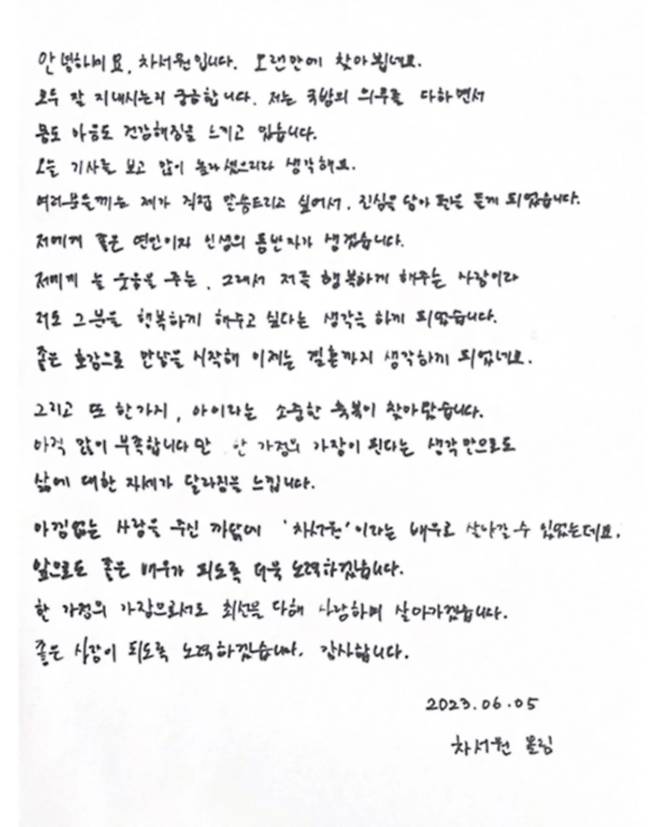 안녕하세요, 차서원입니다. 오랜만에 찾아뵙네요.
모두 잘 지내시는지 궁금합니다. 저는 국방의 의무를 다하면서
몸도 마음도 건강해짐을 느끼고 있습니다.
오늘 기사를 보고 많이 놀라셨으리라 생각해요.
여러분들께는 제가 직접 말씀드리고 싶어서, 진심을 담아 펜을 들게 되었습니다.
저에게 좋은 연인이자 인생의 동반자가 생겼습니다.
저에게 늘 웃음을 주는, 그래서 저를 행복하게 해주는 사람이라
저도 그분을 행복하게 해주고 싶다는 생각을 하게 되었습니다.
좋은 호감으로 만남을 시작해 이제는 결혼까지 생각하게 되었네요.
그리고 또 한가지, 아이라는 소중한 축복이 찾아왔습니다.
아직 많이 부족합니다만 한 가정의 가장이 된다는 생각만으로도
삶에 대한 자세가 달라짐을 느낍니다.
아낌없는 사랑을 주신 까닭에 '차서원'이라는 배우로 살아갈 수 있었는데요,
앞으로도 좋은 배우가 되도록 더욱 노력하겠습니다.
한 가정의 가장으로서도 최선을 다해 사랑하며 살아가겠습니다.
좋은 사람이 되도록 노력하겠습니다. 감사합니다.
2023.06.05
차서원 올림